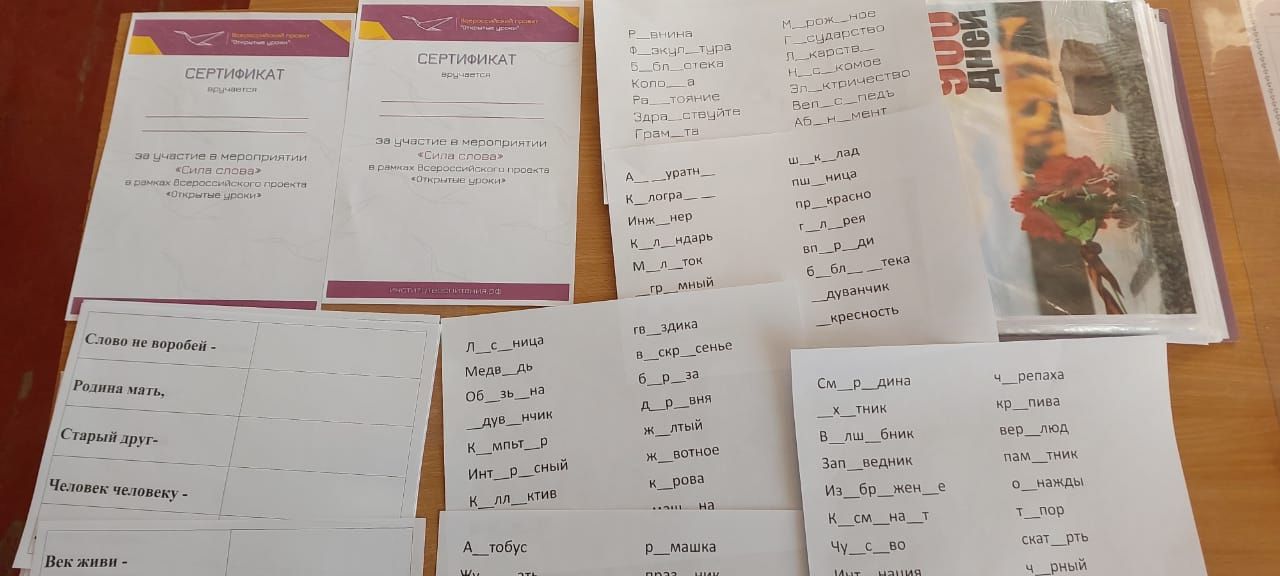 Всероссийский проект
"Открытые уроки"
СЕРТИФИКАТ
вручается
за участие в мероприятии
«Сила слова»
в рамках Всероссийского проекта
«Открытые уроки»
Всероссийский проект
"Открытые уроки"
СЕРТИФИКАТ
вручается
за участие в мероприятии
«Сила слова»
в рамках Всероссийского проекта
«Открытые уроки»
институтвоспитания.рф
Р__внина
Ф__зкул__тура
Б__бл__отека
Коло__а
Ра__тояние
Здра__ствуйте
Грам__та
М__рож__ное
Г__сударство
Л__карств__
Н__с__комое
Эл__ктричество
Вел__с__педь
Аб__н__мент
900
дней
А__ __уратн__
К__логра__ __
Инж__нер
К__л__ндарь
М__л__ток
__гр__мный
ш__к__лад
пш__ница
пр__красно
г__л__рея
вп__р__ди
б__бл__ __тека
__дуванчик
__кресность
Слово не воробей -
Родина мать,
Старый друг-
Человек человеку -
Век живи -
Л__с__ница
Медв__дь
Об__зь__на
__дув__нчик
К__мпьт__р
Инт__р__сный
К__лл__ктив
гв__здика
в__скр__сенье
б__р__за
д__р__вня
ж__лтый
ж__вотное
к__рова
маш__на
А__тобус
р__машка
См__р__дина
__х__тник
В__лш__бник
Зап__ведник
Из__бр__жен__е
К__см__на__т
Чу__с__во
Инт__нация
ч__репаха
кр__пива
вер__люд
пам__тник
о__нажды
т__пор
скат__рть
ч__рный